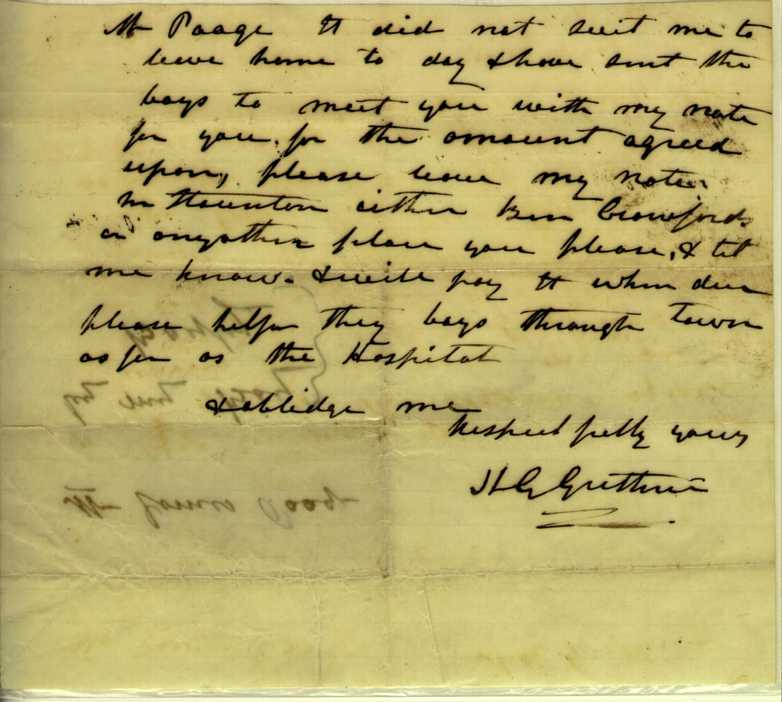 Mr Paage It did not suit me to
leave home to day & have sent the
boys to meet you with my note
for you. for the amount agreed
upon, please leave my note
in Staunton either Ben Crawfords
or anyother place you please, & let
me know. & will pay it when due
please helpe they boys through town
as far as the Hospital
& obblidge me
Respectfully yours
H G Guthrie
Mr James Paage